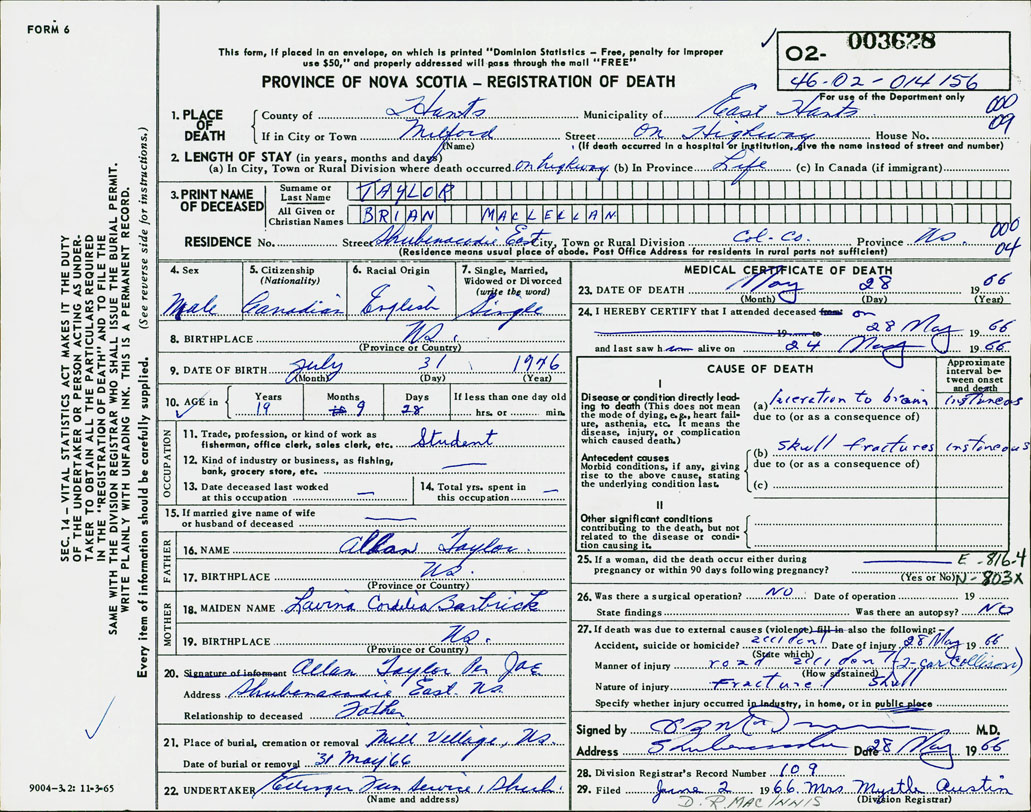 FORM 6
003628
O2-
46-02-014156
For use of the Department only
This form, if placed in an envelope, on which is printed "Dominion Statistics – Free, penalty for improper
use $50," and properly addressed will pass through the mail "FREE"
PROVINCE OF NOVA SCOTIA – REGISTRATION OF DEATH
SEC. 14 – VITAL STATISTICS ACT MAKES IT THE DUTY
OF THE UNDERTAKER OR PERSON ACTING AS UNDER-
TAKER TO OBTAIN ALL THE PARTICULARS REQUIRED
IN THE "REGISTRATION OF DEATH" AND TO FILE THE
SAME WITH THE DIVISION REGISTRAR WHO SHALL ISSUE THE BURIAL PERMIT.
WRITE PLAINLY WITH UNFADING INK. THIS IS A PERMANENT RECORD.
Every item of information should be carefully supplied. (See reverse side for instructions.)
1. PLACE OF DEATH County of Hants Municipality of East Hants 000
If in City or Town Milford Street on Highway House No. 09
(Name) (If death occurred in a hospital or institution, give the name instead of street and number)
2. LENGTH OF STAY (in years, months and days)
(a) In City, Town or Rural Division where death occurred on highway (b) In Province Life (c) In Canada (if immigrant)
3. PRINT NAME OF DECEASED Surname or Last Name TAYLOR
All Given or Christian Names BRIAN MACLELLAN
RESIDENCE No. Street Shubenacadie East City, Town or Rural Division Col-Co. Province Ns. 000
04
(Residence means usual place of abode. Post Office Address for residents in rural parts not sufficient)
4. Sex 5. Citizenship (Nationality) 6. Racial Origin 7. Single, Married, Widowed or Divorced (write the word)
Male Canadian English Single
8. BIRTHPLACE Ns.
(Province or Country)
9. DATE OF BIRTH July 31 1946
(Month) (Day) (Year)
10. AGE in Years Months Days If less than one day old
19 9 28 hrs. or min.
OCCUPATION
11. Trade, profession, or kind of work as
fisherman, office clerk, sales clerk, etc. Student
12. Kind of industry or business, as fishing,
bank, grocery store, etc. —
13. Date deceased last worked
at this occupation —
14. Total yrs. spent in
this occupation —
15. If married give name of wife
or husband of deceased —
FATHER
16. NAME Allan Taylor.
17. BIRTHPLACE Ns.
(Province or Country)
MOTHER
18. MAIDEN NAME Lavina Cordelia Barbrick
19. BIRTHPLACE Ns.
(Province or Country)
20. Signature of informant Allan Taylor Per
Address Shubenacadie East Ns.
Relationship to deceased Father
21. Place of burial, cremation or removal Mill Village, Ns.
Date of burial or removal 31 May 66
22. UNDERTAKER Ettinger Fun Service, Shub.
(Name and address)
9004-3.2: 11-3-65
MEDICAL CERTIFICATE OF DEATH
23. DATE OF DEATH May 28 1966
(Month) (Day) (Year)
24. I HEREBY CERTIFY that I attended deceased from on
19 to 28 May 1966
and last saw h im alive on 24 May 1966
CAUSE OF DEATH
Approximate interval between onset and death
I
Disease or condition directly lead-
ing to death (This does not mean
the mode of dying, e.g., heart fail-
ure, asthenia, etc. It means the
disease, injury, or complication
which caused death.)
(a) laceration to brain instaneous
due to (or as a consequence of)
Antecedent causes
Morbid conditions, if any, giving
rise to the above cause, stating
the underlying condition last.
(b) Skull fractures instaneous
due to (or as a consequence of)
(c)
II
Other significant conditions
contributing to the death, but not
related to the disease or condi-
tion causing it.
25. If a woman, did the death occur either during
pregnancy or within 90 days following pregnancy? —
(Yes or No)
E-816-4
N-803X
26. Was there a surgical operation? NO Date of operation 19
State findings Was there an autopsy? NO
27. If death was due to external causes (violence) fill in also the following:–
Accident, suicide or homicide? accident Date of injury 28 May 1966
(State which)
Manner of injury road accident (2-car Collison)
(How sustained)
Nature of injury Fracture / Skull
Specify whether injury occurred in industry, in home, or in public place
Signed by M.D.
Address Shubenacadie Date 28 May 1966
28. Division Registrar's Record Number 109
29. Filed June 2 1966. Mrs Myrtle Austin
(Division Registrar)
D. R. MACINNIS